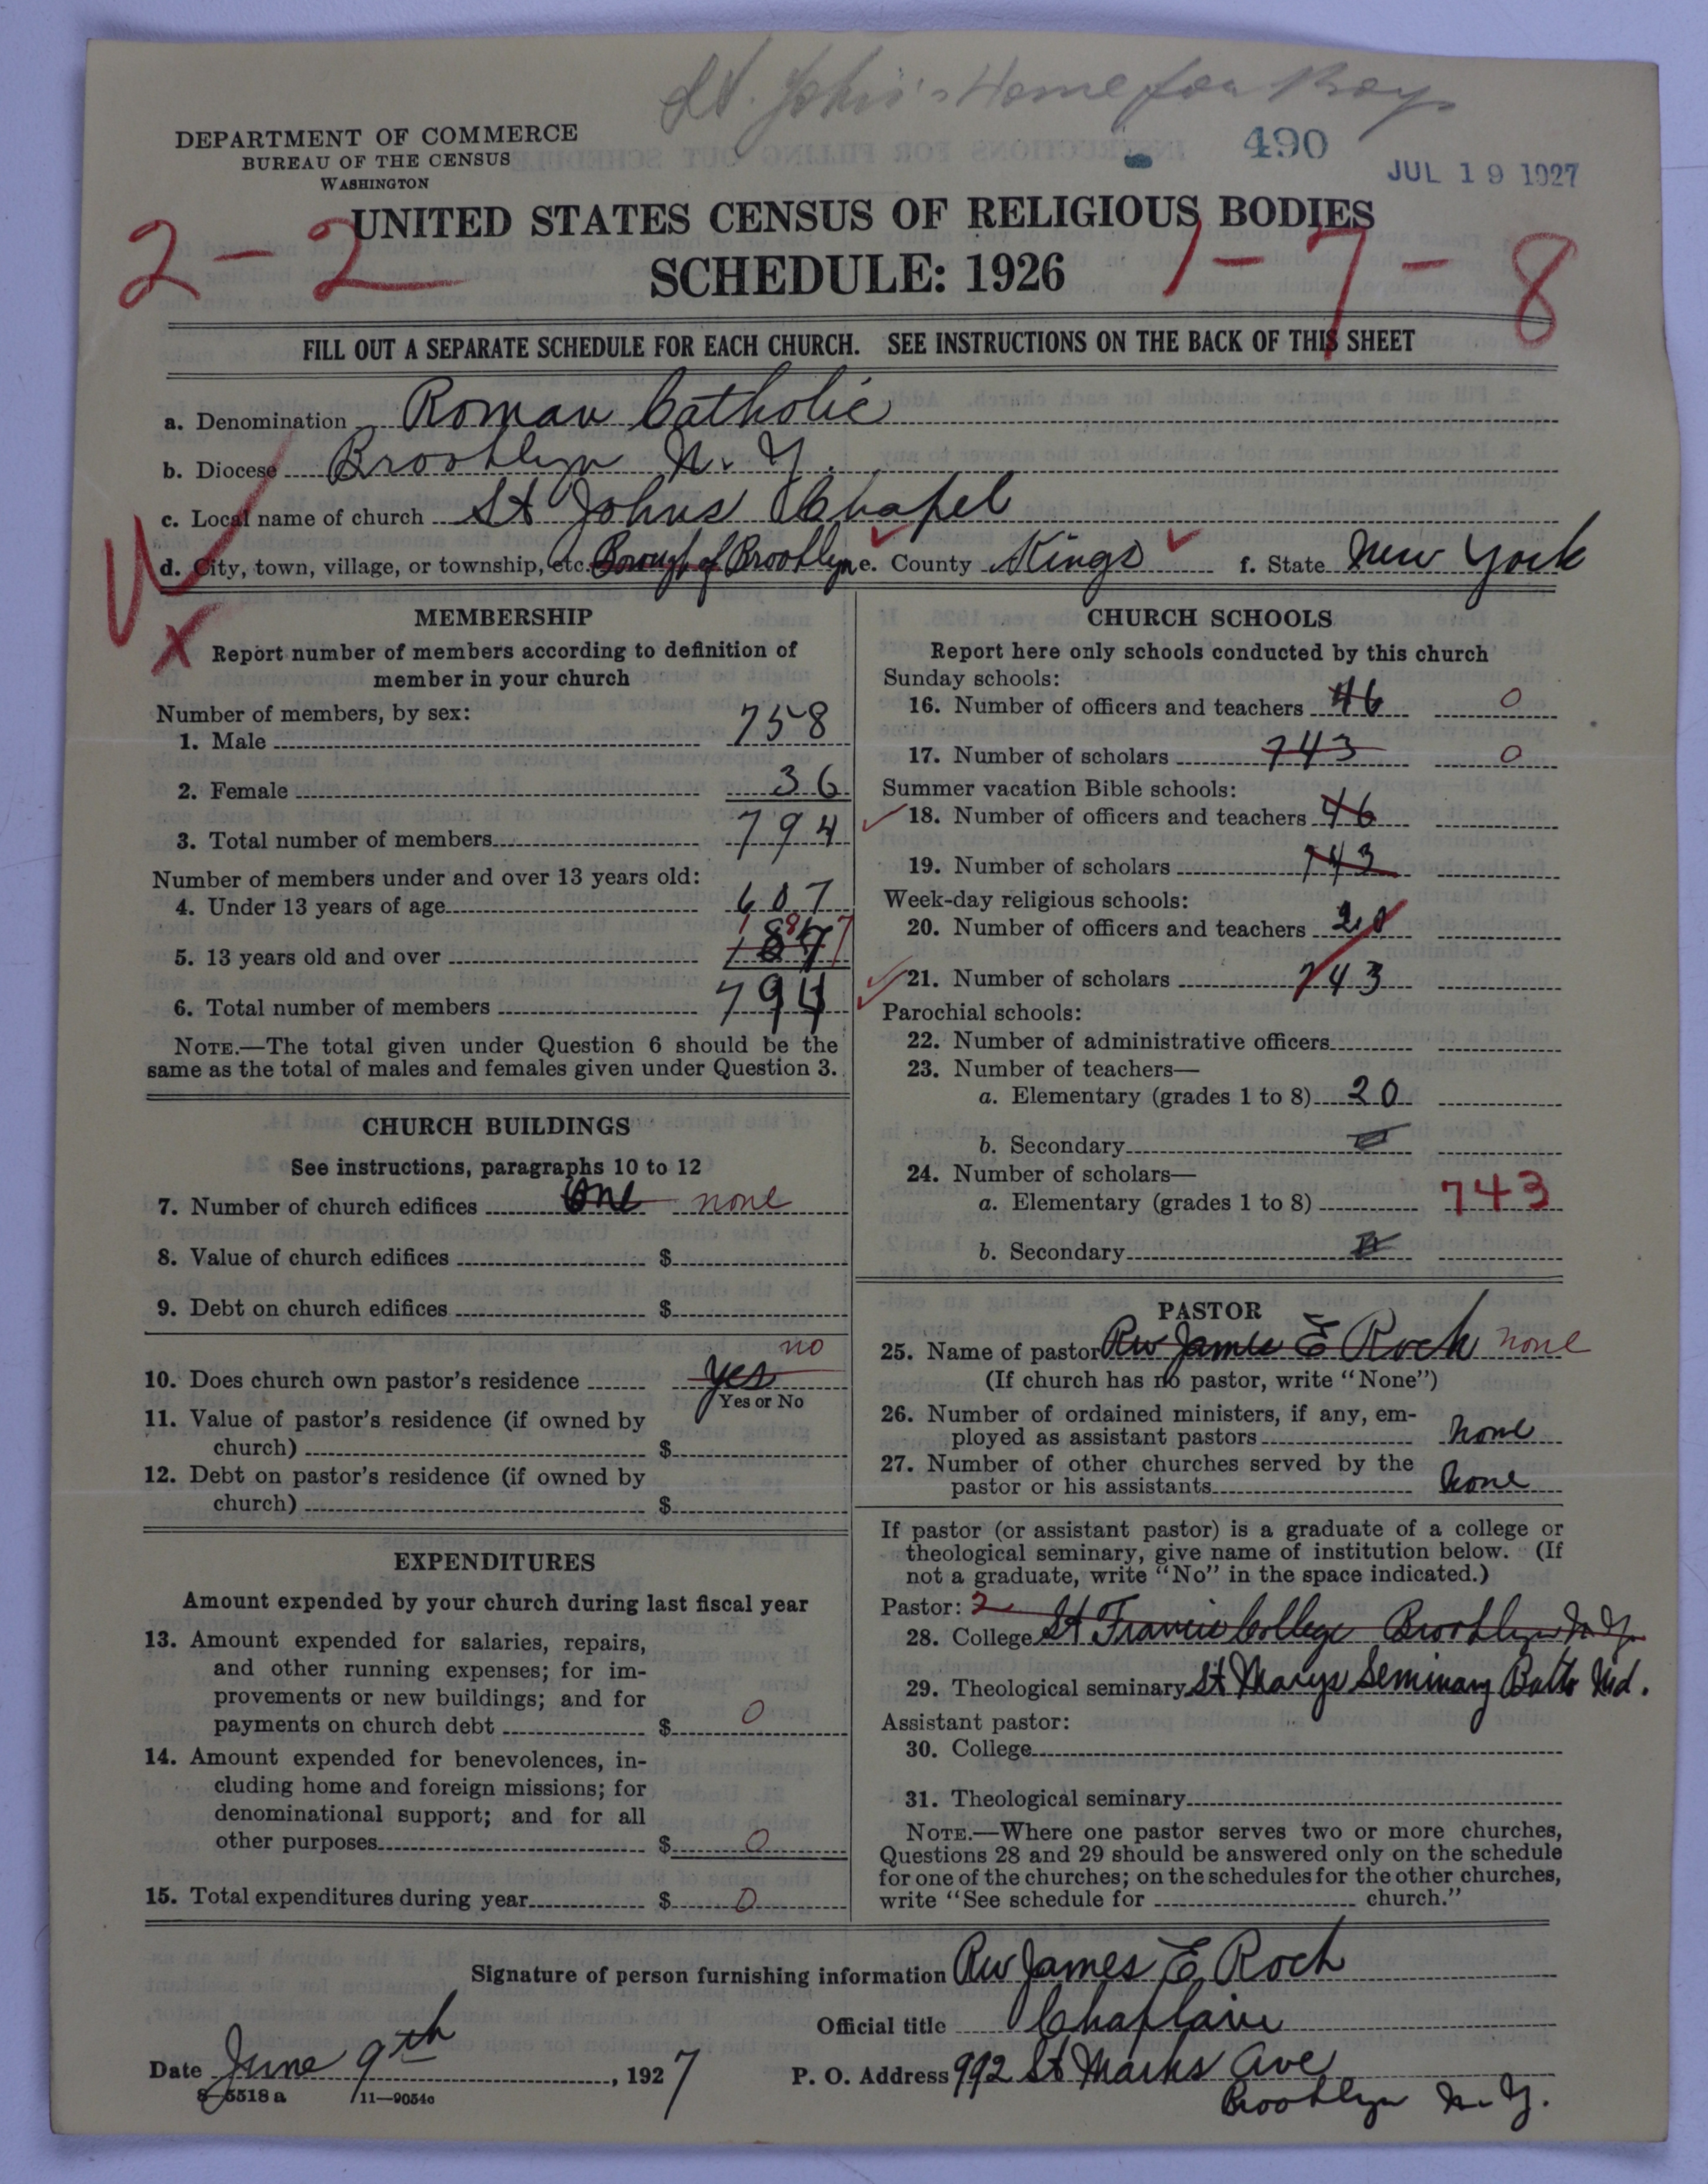 St. John's Home for Boys
DEPARTMENT OF COMMERCE
BUREAU OF THE CENSUS
WASHINGTON
490
JUL 19 1927
UNITED STATES CENSUS OF RELIGIOUS BODIES
SCHEDULE: 1926
2-2
1-7-8
FILL OUT A SEPARATE SCHEDULE FOR EACH CHURCH. SEE INSTRUCTIONS ON THE BACK OF THIS SHEET
a. Denomination Roman Catholic
b. Diocese Brooklyn N.Y.
c. Local name of church St Johns Chapel
d. City, town, village, or township, etc. Borough of Brooklyn e. County Kings f. State New York
MEMBERSHIP
X
Report number of members according to definition of
member in your church
Number of members, by sex:
1. Male 758
2. Female 36
3. Total number of members 794
Number of members under and over 13 years old:
4. Under 13 years of age 607
5. 13 years old and over 187
6. Total number of members 794
NOTE.—The total given under Question 6 should be the
same as the total of males and females given under Question 3.
CHURCH BUILDINGS
See instructions, paragraphs 10 to 12
7. Number of church edifices One none
8. Value of church edifices $
9. Debt on church edifices $
10. Does church own pastor's residence yes no
Yes or No
11. Value of pastor's residence (if owned by
church) $
12. Debt on pastor's residence (if owned by
church) $
EXPENDITURES
Amount expended by your church during last fiscal year
13. Amount expended for salaries, repairs,
and other running expenses; for im-
provements or new buildings; and for
payments on church debt $ 0
14. Amount expended for benevolences, in-
cluding home and foreign missions; for
denominational support; and for all
other purposes $ 0
15. Total expenditures during year $ 0
CHURCH SCHOOLS
Report here only schools conducted by this church
Sunday schools:
16. Number of officers and teachers 46 0
17. Number of scholars 743 0
Summer vacation Bible schools:
18. Number of officers and teachers 46
19. Number of scholars 743
Week-day religious schools:
20. Number of officers and teachers 20
21. Number of scholars 743
Parochial schools:
22. Number of administrative officers
23. Number of teachers—
a. Elementary (grades 1 to 8) 20
b. Secondary
24. Number of scholars—
a. Elementary (grades 1 to 8) 743
b. Secondary
PASTOR
25. Name of pastor Rev James E Roch none
(If church has no pastor, write "None")
26. Number of ordained ministers, if any, em-
ployed as assistant pastors None
27. Number of other churches served by the
pastor or his assistants None
If pastor (or assistant pastor) is a graduate of a college or
theological seminary, give name of institution below. (If
not a graduate, write "No" in the space indicated.)
Pastor: 2
28. College St Francis College Brooklyn N.Y.
29. Theological seminary St Marys Seminary Balto Md.
Assistant pastor:
30. College
31. Theological seminary
NOTE.—Where one pastor serves two or more churches,
Questions 28 and 29 should be answered only on the schedule
for one of the churches; on the schedules for the other churches,
write "See schedule for church."
Signature of person furnishing information Rev James E Roch
Official title Chaplain
Date June 9th, 1927
P. O. Address 992 St Marks Ave
Brooklyn N.Y.
8-5518a 11-9054c